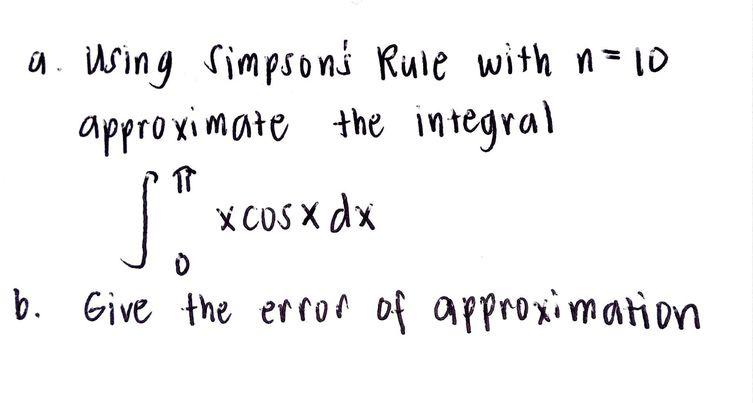 a. Using Simpson's Rule with n = 10
approximate the integral
∫₀^π x cos x dx
b. Give the error of approximation